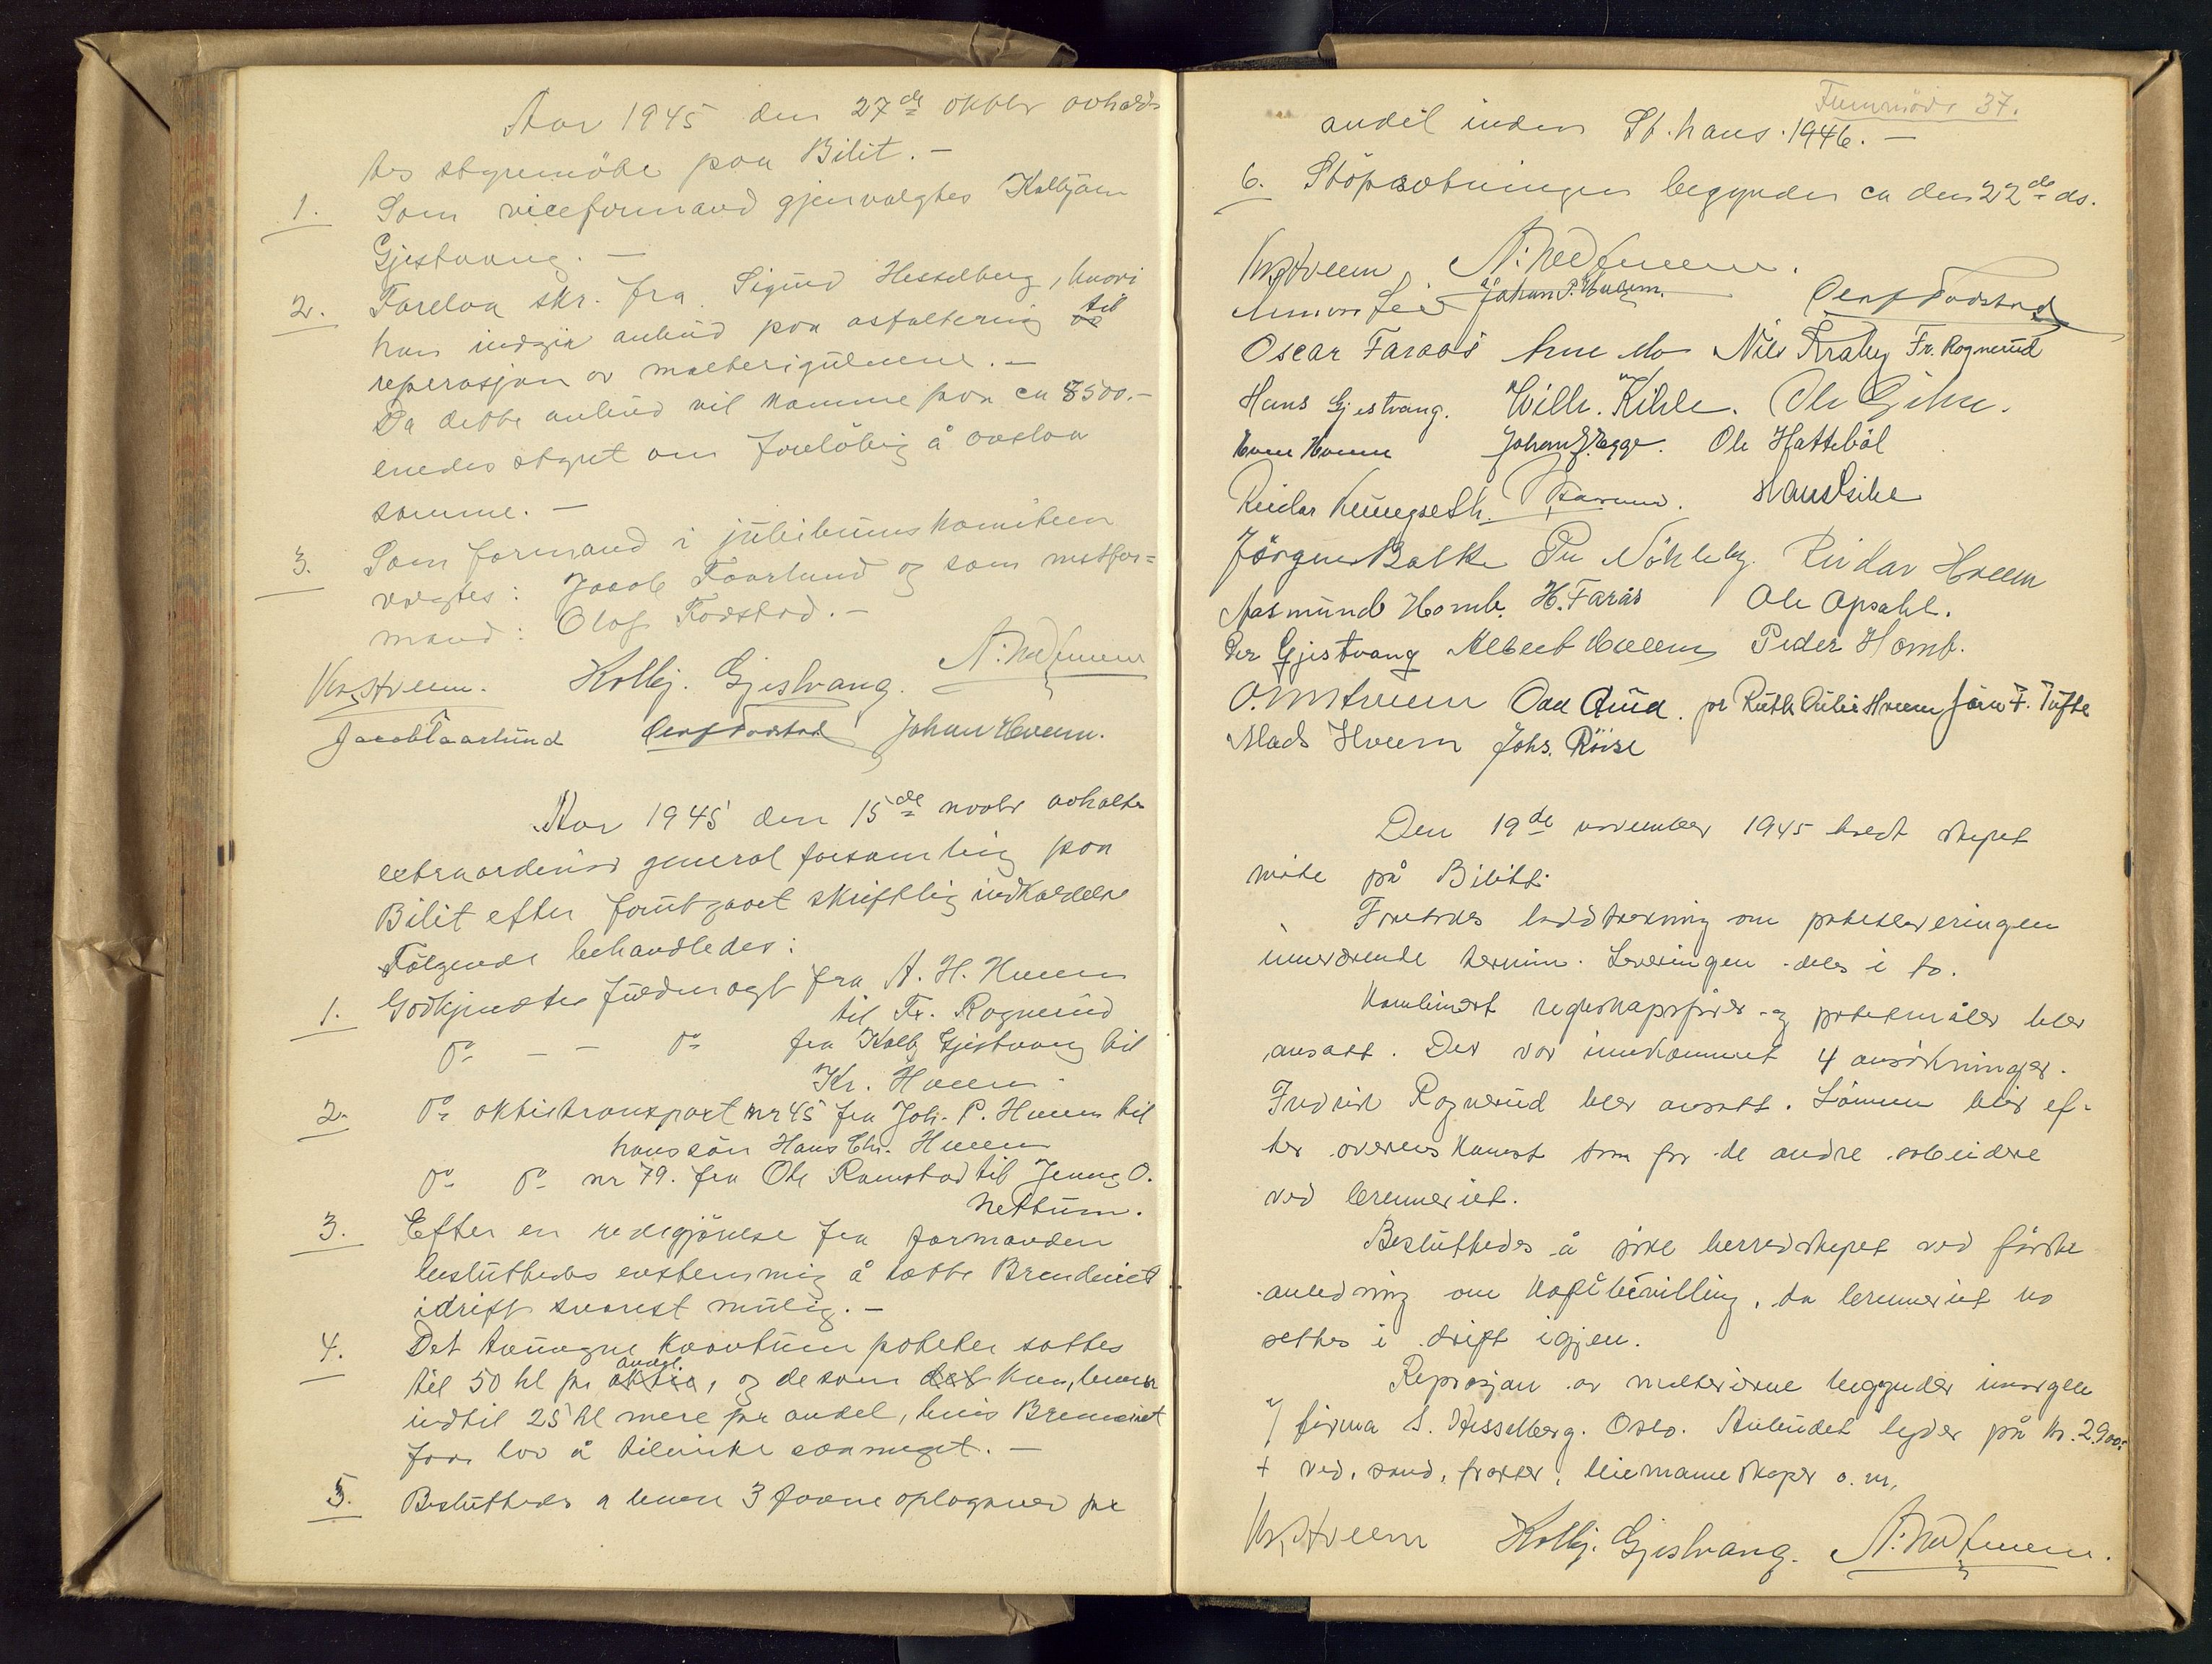 Aar 1945 den 27de oktbr avhald-
tes styremöte paa Bilit. –
1. Som viceformand gjenvalgtes Kolbjörn
Gjestvang. –
2. Forelaa skr. fra Sigurd Hesselberg, hvori
han indgir anbud paa asfaltering til
reperasjon av malterigulvene. –
Da dette anbud vil komme paa ca 8500.–
enedes styret om forelöbig å avslaa
samme. –
3. Som formand i jubileumskomiteen
valgtes: Jacob Faarlund og som nestfor=
mand: Olaf Fodstad. –
Kr. Hveem. Kolbj. Gjestvang. N. Nedhveem
Jacob Faarlund Olaf Fodstad Johan Hveem.
Aar 1945 den 15de novbr avholtes
extraordinær general forsamling paa
Bilit efter forutgaaet skriftlig indkaldelse
Fölgende behandledes:
1. Godkjendtes fuldmagt fra A. H. Hveem
til Fr. Rognerud
Do – – Do fra Kolbj Gjestvang til
Kr. Hveem.
2. Do aktietransport nr 45 fra Joh. P. Hveem til
hans sön Hans Chr. Hveem
Do Do nr 79. fra Ole Ramstad til Jenny O.
Nettum.
3. Efter en redegjörelse fra formanden
besluttedes enstemmig å sætte Brenderiet
i drift snarest mulig. –
4. Det tvungne kvantum poteter sattes
andel.
til 50 hl pr aktie, og de som det kan, levere
indtil 25 hl mere pr andel, hvis Brenneriet
faar lov å tilvirke saa meget. –
5. Besluttedes a levere 3 favne oplagsved pr
Furumöve 37.
andel inden St. hans 1946. –
6. Stöpsætningen begynder ca den 22de ds.
Kr. Hveem. N. Nedhveem.
Johan P. Hveem. Olaf Fodstad
Oscar Faraas Nils Kraby Fr. Rognerud
Hans Gjestvang. Wilh. Kihle. Ole Gihle.
Johan Egge. Ole Hattebøl
Reidar Hans Gihle
Jörgen Balke Per Nökleby. Reidar Hveem
Aasmund Homb. H. Farås Ole Opsahl.
Per Gjestvang Albert Hveem Peder Homb.
O. M. Hveem Odd Rud. pr Ruth Rubie Hveem Jörn F. Tufte
Mads Hveem Johs. Röise
Den 19de november 1945 holdt styret
möte på Bilitt.
Foretoges loddtrekning om potetleveringen
inneværende termin. Leveringen deles i to.
Kombinert regnskapsfører og potetmåler blev
ansatt. Der var innkommet 4 ansökninger.
Fredrik Rognerud blev ansatt. Lönnen blir ef-
ter overenskomst som for de andre arbeidere
ved brenneriet.
Besluttedes å söke herredstyret ved förste
anledning om kraftbevilling, da brenneriet no
settes i drift igjen.
Reprasjon av malteriene begynder imorgen
v/ firma S. Hesselberg. Oslo. Anbudet lyder på kr. 2900.-
+ ved, sand, frakter, leiemannskaper o. m.
Kr. Hveem Kolbj. Gjestvang. N. Nedhveem.